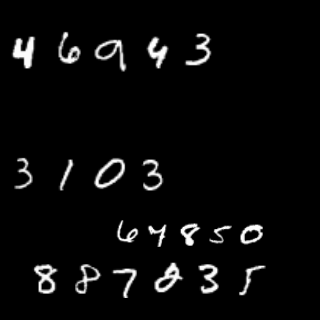 46943
3103
64850
887035